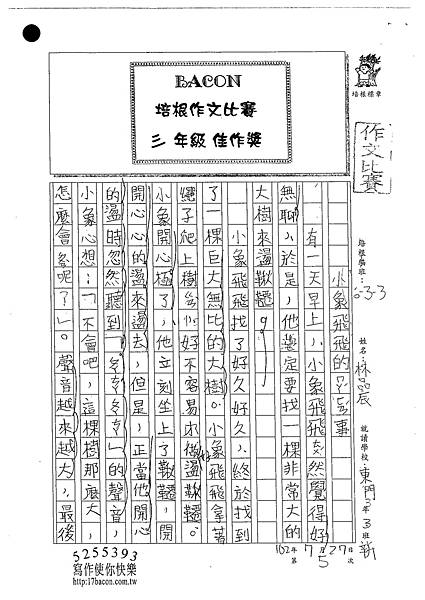 BACON
培根作文比賽
三 年級 佳作獎
培根標章
作文比賽
培根學班：
033
姓名：林品辰
就讀學校：東門3年3班
小象飛飛的
事
有一天早上，小象飛飛突然覺得好
無聊，於是，他決定要找一棵非常大的
大樹來盪鞦韆。
小象飛飛找了好久好久，終於找到
了一棵巨大無比的大樹。小象飛飛拿著
繩子爬上樹
好不容易
做盪鞦韆。
小象開心極了，他立刻坐上了鞦韆，開
開心心的盪來盪去，但是，正當他開心
的盪時忽然聽到「ㄎㄎㄎ」的聲音，
小象心想：「不會吧，這棵樹那麼大，
怎麼會
呢？」。聲音越來越大，最後
102年7月27日
第5次
5255393
寫作使你快樂
http://17bacon.com.tw